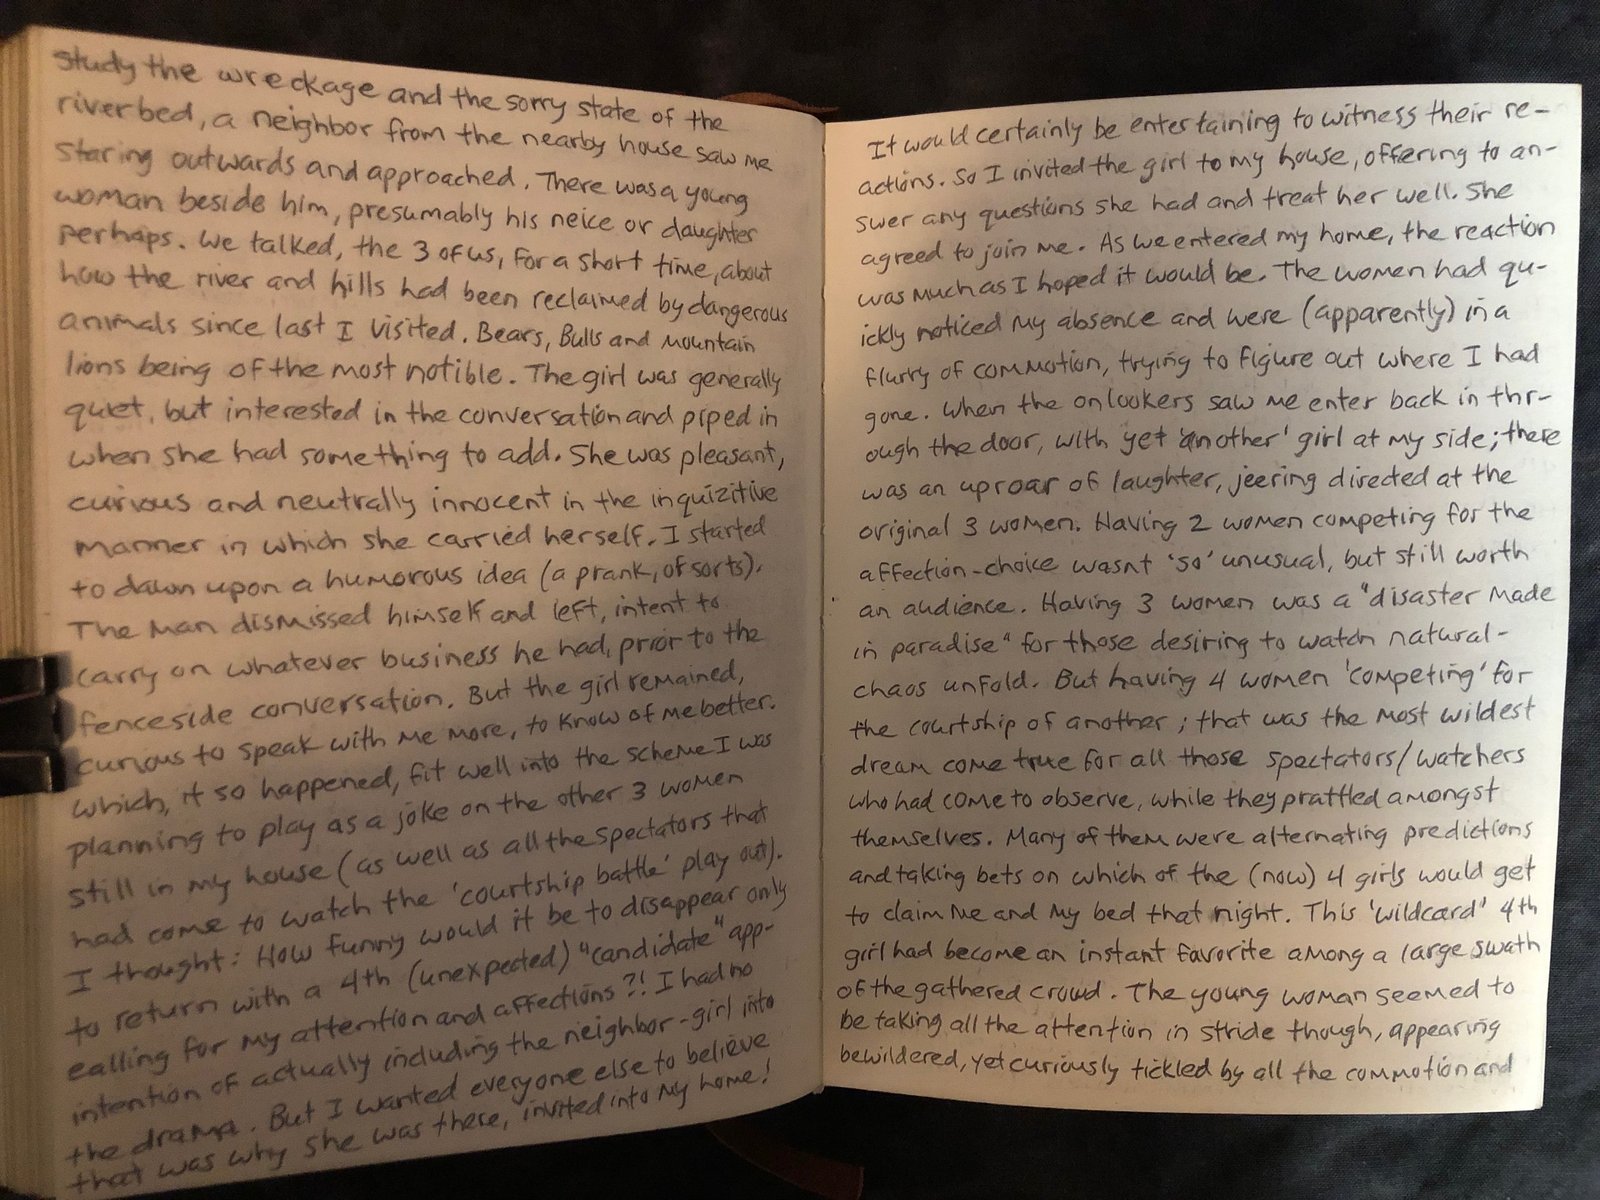 study the wreckage and the sorry state of the
riverbed, a neighbor from the nearby house saw me
staring outwards and approached. There was a young
woman beside him, presumably his neice or daughter
perhaps. We talked, the 3 of us, for a short time, about
how the river and hills had been reclaimed by dangerous
animals since last I visited. Bears, Bulls and mountain
lions being of the most notible. The girl was generally
quiet, but interested in the conversation and piped in
when she had something to add. She was pleasant,
curious and neutrally innocent in the inquizitive
manner in which she carried herself. I started
to dawn upon a humorous idea (a prank, of sorts).
The man dismissed himself and left, intent to
carry on whatever business he had, prior to the
fenceside conversation. But the girl remained,
curious to speak with me more, to know of me better.
which, it so happened, fit well into the scheme I was
planning to play as a joke on the other 3 women
still in my house (as well as all the spectators that
had come to watch the 'courtship battle' play out).
I thought: How funny would it be to disappear only
to return with a 4th (unexpected) "candidate" app-
ealling for my attention and affections?! I had no
intention of actually including the neighbor-girl into
the drama. But I wanted everyone else to believe
that was why she was there, invited into my home!
It would certainly be entertaining to witness their re-
actions. So I invited the girl to my house, offering to an-
swer any questions she had and treat her well. She
agreed to join me. As we entered my home, the reaction
was much as I hoped it would be. The women had qu-
ickly noticed my absence and were (apparently) in a
flurry of commotion, trying to figure out where I had
gone. When the onlookers saw me enter back in thr-
ough the door, with yet 'another' girl at my side; there
was an uproar of laughter, jeering directed at the
original 3 women. Having 2 women competing for the
affection-choice wasnt 'so' unusual, but still worth
an audience. Having 3 women was a "disaster made
in paradise" for those desiring to watch natural-
chaos unfold. But having 4 women 'competing' for
the courtship of another; that was the most wildest
dream come true for all those spectators/watchers
who had come to observe, while they prattled amongst
themselves. Many of them were alternating predictions
and taking bets on which of the (now) 4 girls would get
to claim me and my bed that night. This 'wildcard' 4th
girl had become an instant favorite among a large swath
of the gathered crowd. The young woman seemed to
be taking all the attention in stride though, appearing
bewildered, yet curiously tickled by all the commotion and